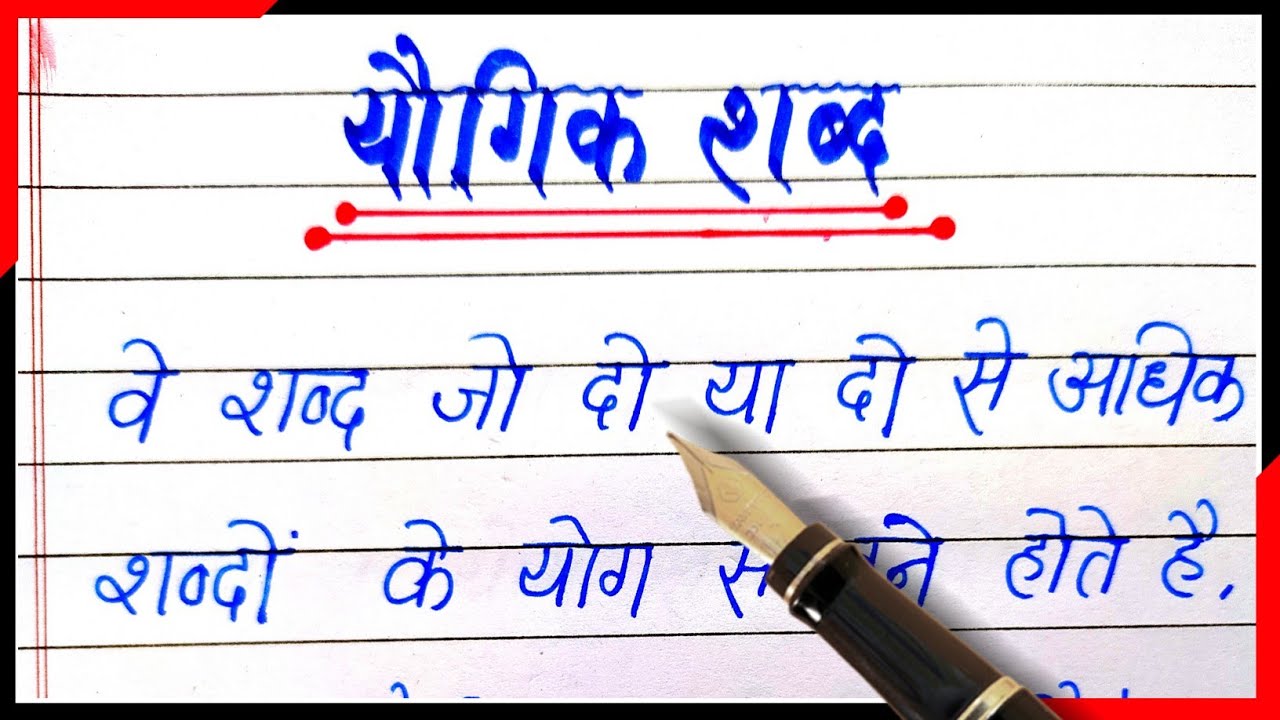 यौगिक शब्द
वे शब्द जो दो या दो से अधिक
शब्दों के योग होते है.